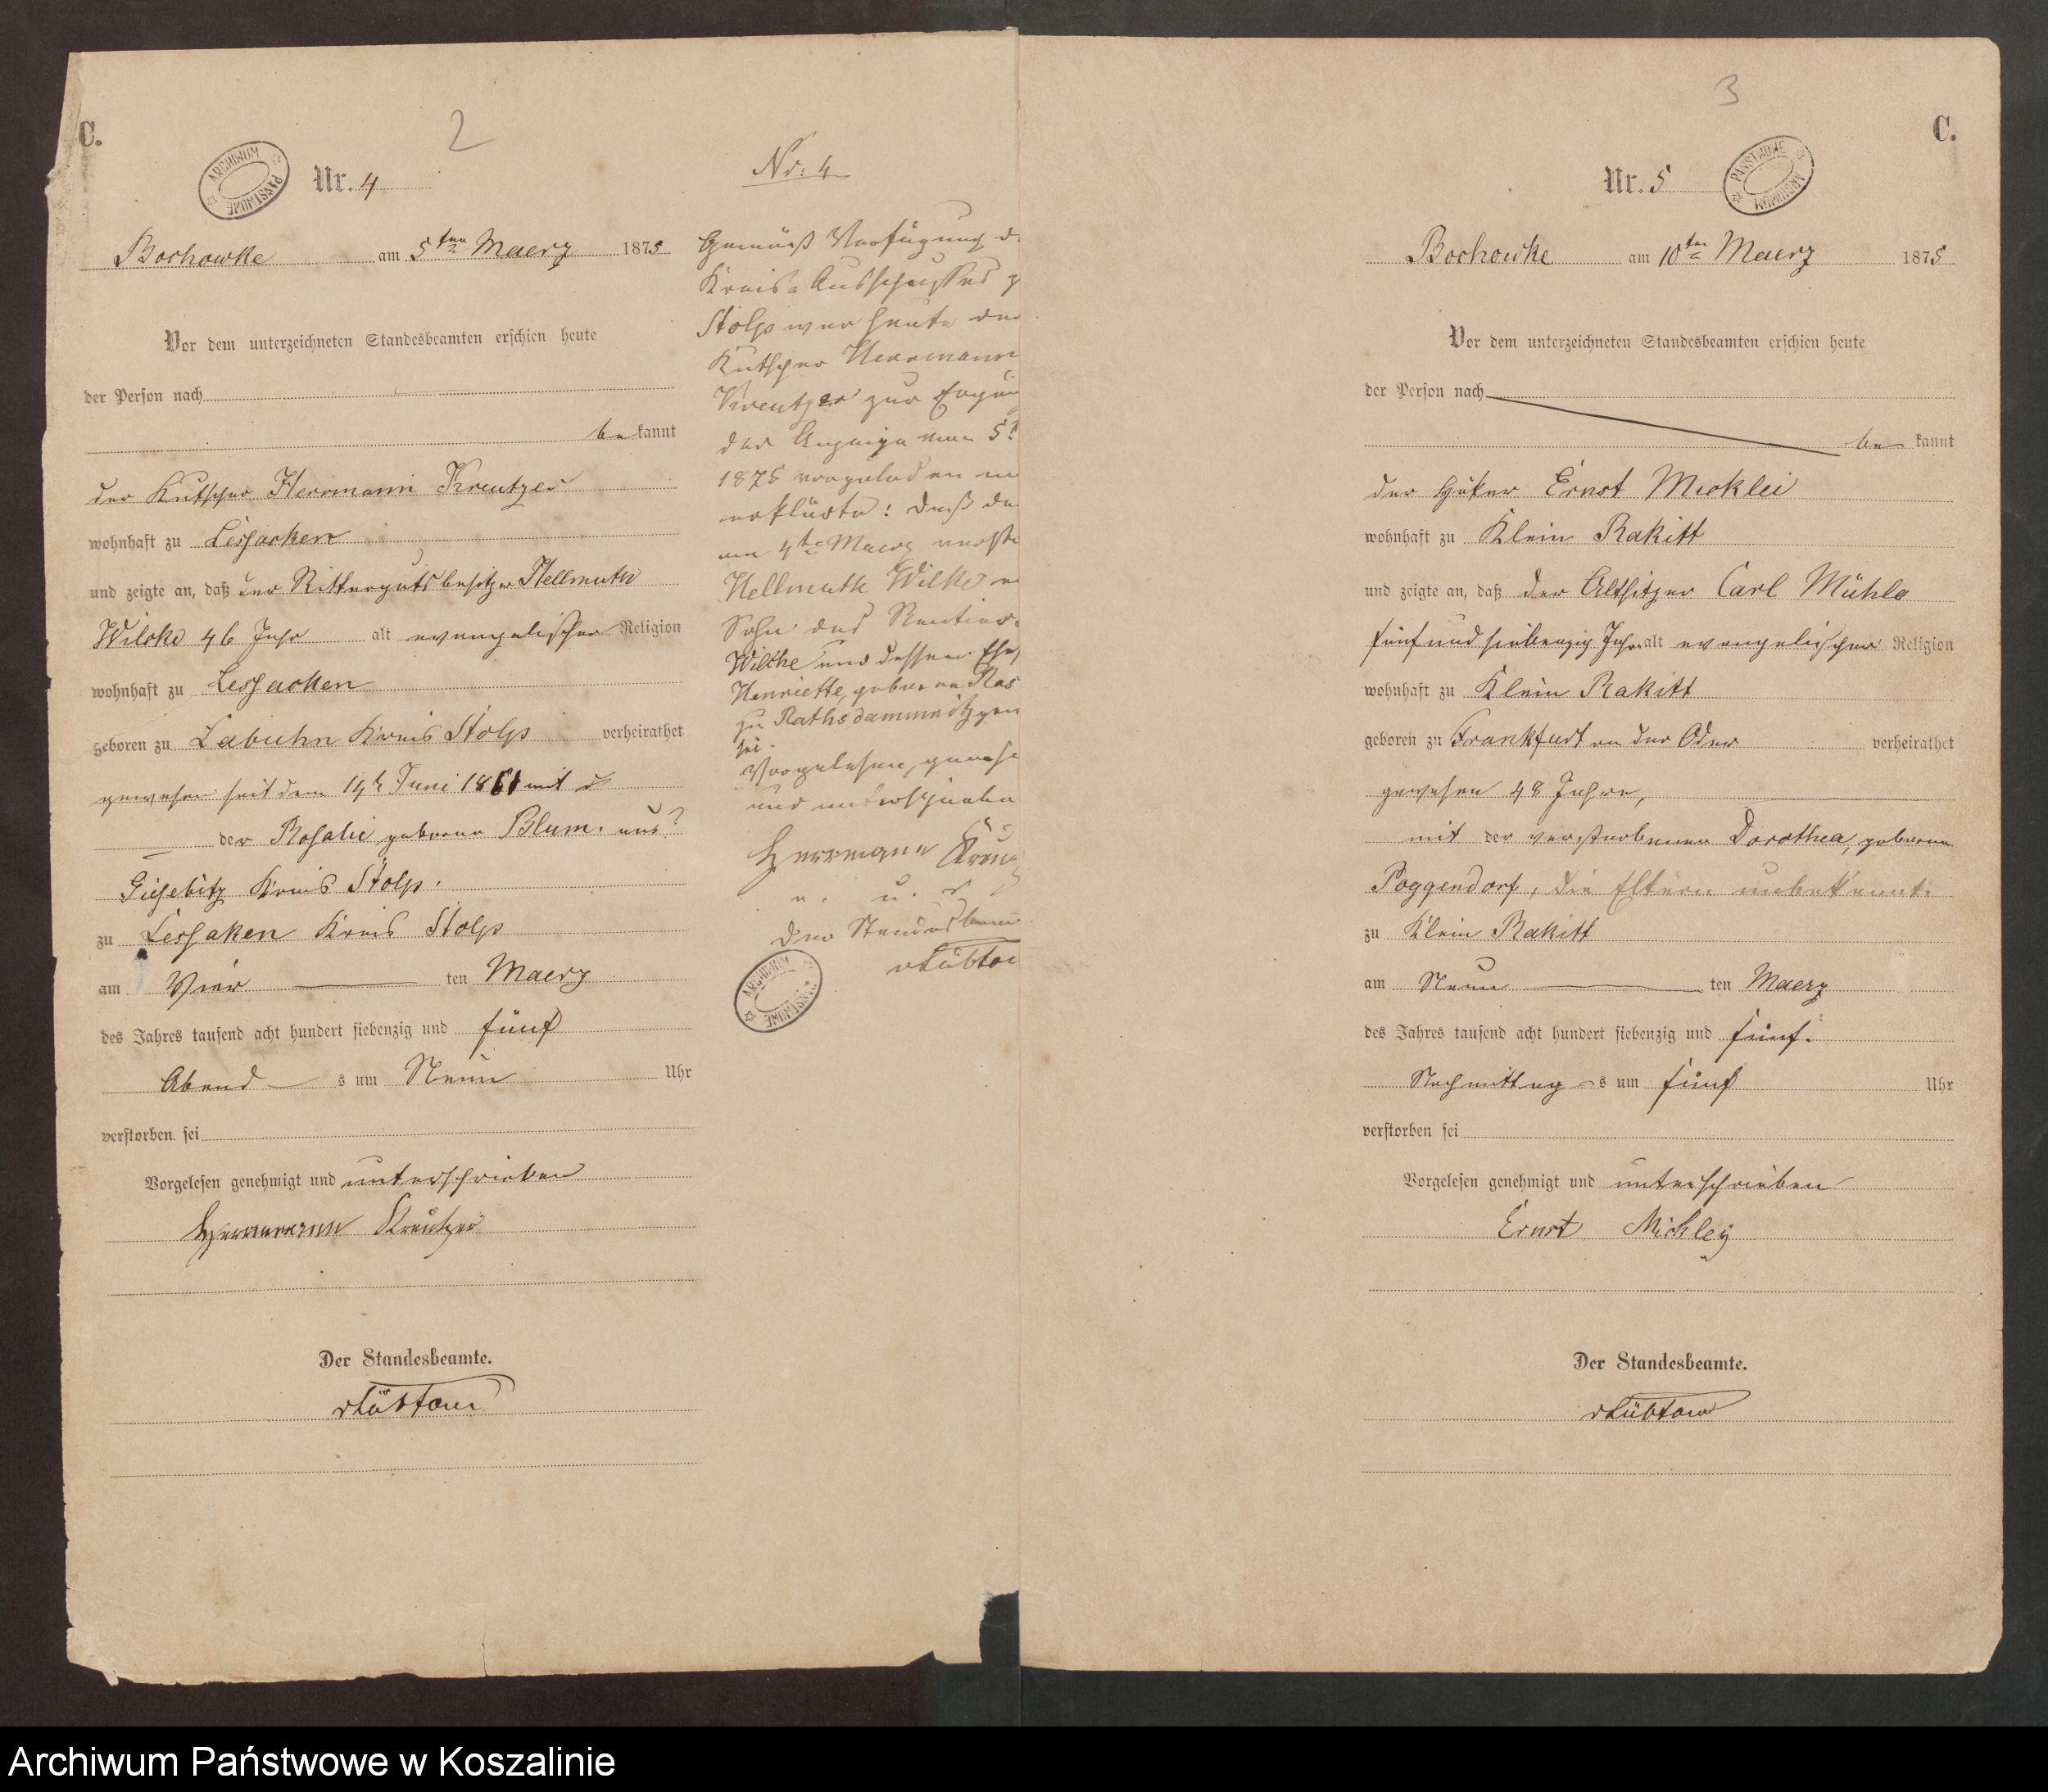 C.
2
ARCHIWUM PAŃSTWOWE
Nr. 4
Bochowke am 5ten Maerz 1875
Vor dem unterzeichneten Standesbeamten erschien heute
der Person nach
be kannt
der Kutscher Herrmann Kreutzer
wohnhaft zu Lessacken
und zeigte an, daß der Rittergutsbesitzer Hellmuth
Wilcke 46 Jahr alt evangelischer Religion
wohnhaft zu Lessacken
geboren zu Labuhn Kreis Stolp verheirathet
gewesen seit dem 14t Juni 1861 mit
der Rosalie geborne Blum. aus
Giesebitz Kreis Stolp.
zu Lessaken Kreis Stolp
am Vier ten Maerz
des Jahres tausend acht hundert siebenzig und fünf
Abend s um Neun Uhr
verstorben sei
Vorgelesen genehmigt und unterschrieben
Herrmann Kreutzer
Der Standesbeamte.
Nr. 4
Gemäß Verfügung d
Kreis-Ausschusses z
Stolp war heute der
Kutscher Herrmann
Kreutzer zur Ergän
der Anzeige vom 5t
1875 vorgeladen
erklärte: daß de
am 4te Maerz versto
Hellmuth Wilke
Sohn des Rentier
Wilcke und dessen Ehe
Henriette, geborne Ras
zu Rathsdammnitz gew
sei.
Vorgelesen, geneh
und unterschriebe
Herrmann Kreu
Der Standesbeam
ARCHIWUM PAŃSTWOWE
3
C.
Nr. 5
PAŃSTWOWE ARCHIWUM
Bochowke am 10ten Maerz 1875
Vor dem unterzeichneten Standesbeamten erschien heute
der Person nach
be kannt
der Höker Ernst Micklei
wohnhaft zu Klein Rakitt
und zeigte an, daß der Altsitzer Carl Mühle
fünf und siebenzig Jahr alt evangelischer Religion
wohnhaft zu Klein Rakitt
geboren zu Frankfurt an der Oder verheirathet
gewesen 48 Jahre,
mit der verstorbenen Dorothea, geborene
Poggendorf, die Eltern unbekannt.
zu Klein Rakitt
am Neun ten Maerz
des Jahres tausend acht hundert siebenzig und fünf.
Nachmittag s um fünf Uhr
verstorben sei
Vorgelesen genehmigt und unterschrieben
Ernst Mickley
Der Standesbeamte.
Archiwum Państwowe w Koszalinie